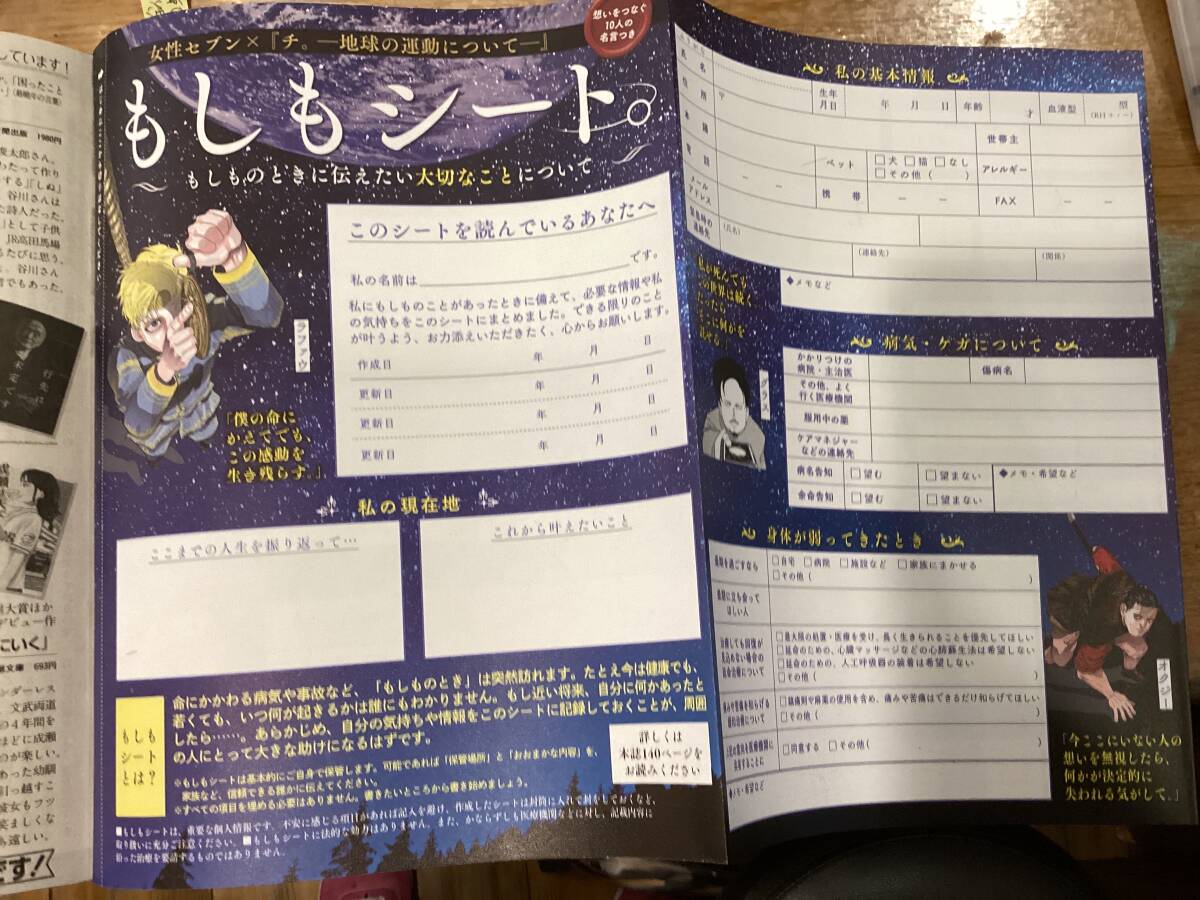 しています！
、「困ったこと
聞出版 1980円
俊太郎さん。
わたって作り
する』『しぬ』
谷川さんは
た詩人だった。
』として子供
JR高田馬場
るたびに思う。
と、谷川さん
言でもあった。
大賞ほか
デビュー作
にいく』
文庫 693円
ンダーレス
文武両道
の4年間を
ほどに成瀬
のが楽しい。
あった幼馴
引っ越すこ
彼女もフツ
笑ましくな
も遠しい。
です！
想いをつなぐ
10人の
名言つき
女性セブン×『チ。―地球の運動について―』
もしもシート。
もしものときに伝えたい大切なことについて
このシートを読んでいるあなたへ
私の名前は です。
私にもしものことがあったときに備えて、必要な情報や私
の気持ちをこのシートにまとめました。できる限りのこと
が叶うよう、お力添えいただきたく、心からお願いします。
作成日 年 月 日
更新日 年 月 日
更新日 年 月 日
更新日 年 月 日
ラファウ
「僕の命に
かえてでも、
この感動を
生き残らす。」
私の現在地
ここまでの人生を振り返って…
これから叶えたいこと
もしも
シート
とは？
命にかかわる病気や事故など、「もしものとき」は突然訪れます。たとえ今は健康でも、
若くても、いつ何が起きるかは誰にもわかりません。もし近い将来、自分に何かあったと
したら……。あらかじめ、自分の気持ちや情報をこのシートに記録しておくことが、周囲
の人にとって大きな助けになるはずです。
※もしもシートは基本的にご自身で保管します。可能であれば「保管場所」と「おおまかな内容」を、
家族など、信頼できる誰かに伝えてください。
※すべての項目を埋める必要はありません。書きたいところから書き始めましょう。
詳しくは
本誌140ページを
お読みください
■もしもシートは、重要な個人情報です。不安に感じる項目があれば記入を避け、作成したシートは封筒に入れて封をしておくなど、
取り扱いに充分ご注意ください。■もしもシートに法的な効力はありません。また、かならずしも医療機関などに対し、記載内容に
沿った治療を要請するものではありません。
私の基本情報
氏名 生年月日 年 月 日 年齢 才 血液型 型
住所 〒
本籍 世帯主
電話 － － ペット □犬 □猫 □なし □その他（ ） アレルギー
メールアドレス 携帯 － － FAX － －
緊急時の連絡先 （氏名） （連絡先） （関係）
◆メモなど
グラス
病気・ケガについて
かかりつけの病院・主治医 傷病名
その他、よく行く医療機関
服用中の薬
ケアマネジャーなどの連絡先
病名告知 □望む □望まない ◆メモ・希望など
余命告知 □望む □望まない
身体が弱ってきたとき
最期を過ごすなら □自宅 □病院 □施設など □家族にまかせる
□その他（ ）
最期に立ち会ってほしい人
治療しても回復が見込めない場合の延命治療について
□最大限の処置・医療を受け、長く生きられることを優先してほしい
□延命のための、心臓マッサージなどの心肺蘇生法は希望しない
□延命のための、人工呼吸器の装着は希望しない
□その他（ ）
痛みや苦痛を和らげる緩和治療について
□鎮痛剤や麻薬の使用を含め、痛みや苦痛はできるだけ和らげてほしい
□その他（ ）
□同意する □その他（ ）
◆メモ・希望など
オクジー
「今ここにいない人の
想いを無視したら、
何かが決定的に
失われる気がして。」